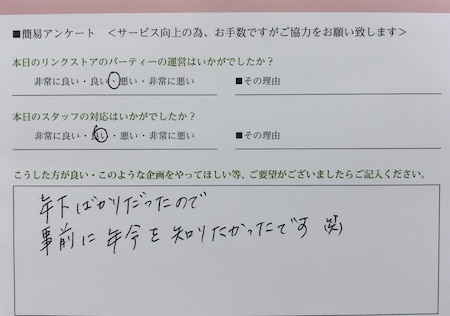 ■簡易アンケート ＜サービス向上の為、お手数ですがご協力をお願い致します＞
本日のリンクストアのパーティーの運営はいかがでしたか？
非常に良い・良い・悪い・非常に悪い ■その理由
本日のスタッフの対応はいかがでしたか？
非常に良い・良い・悪い・非常に悪い ■その理由
こうした方が良い・このような企画をやってほしい等、ご要望がございましたらご記入ください。
年下ばかりだったので
事前に年令を知りたかったです(笑)